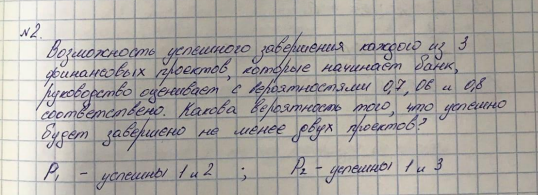 №2.
Возможность успешного завершения каждого из 3
финансовых проектов, которые начинает банк,
руководство оценивает с вероятностями 0,7, 06 и 0,8
соответствено. Какова вероятность того, что успешно
будет завершено не менее двух проектов?
P₁ - успешны 1 и 2 ; P₂ - успешны 1 и 3